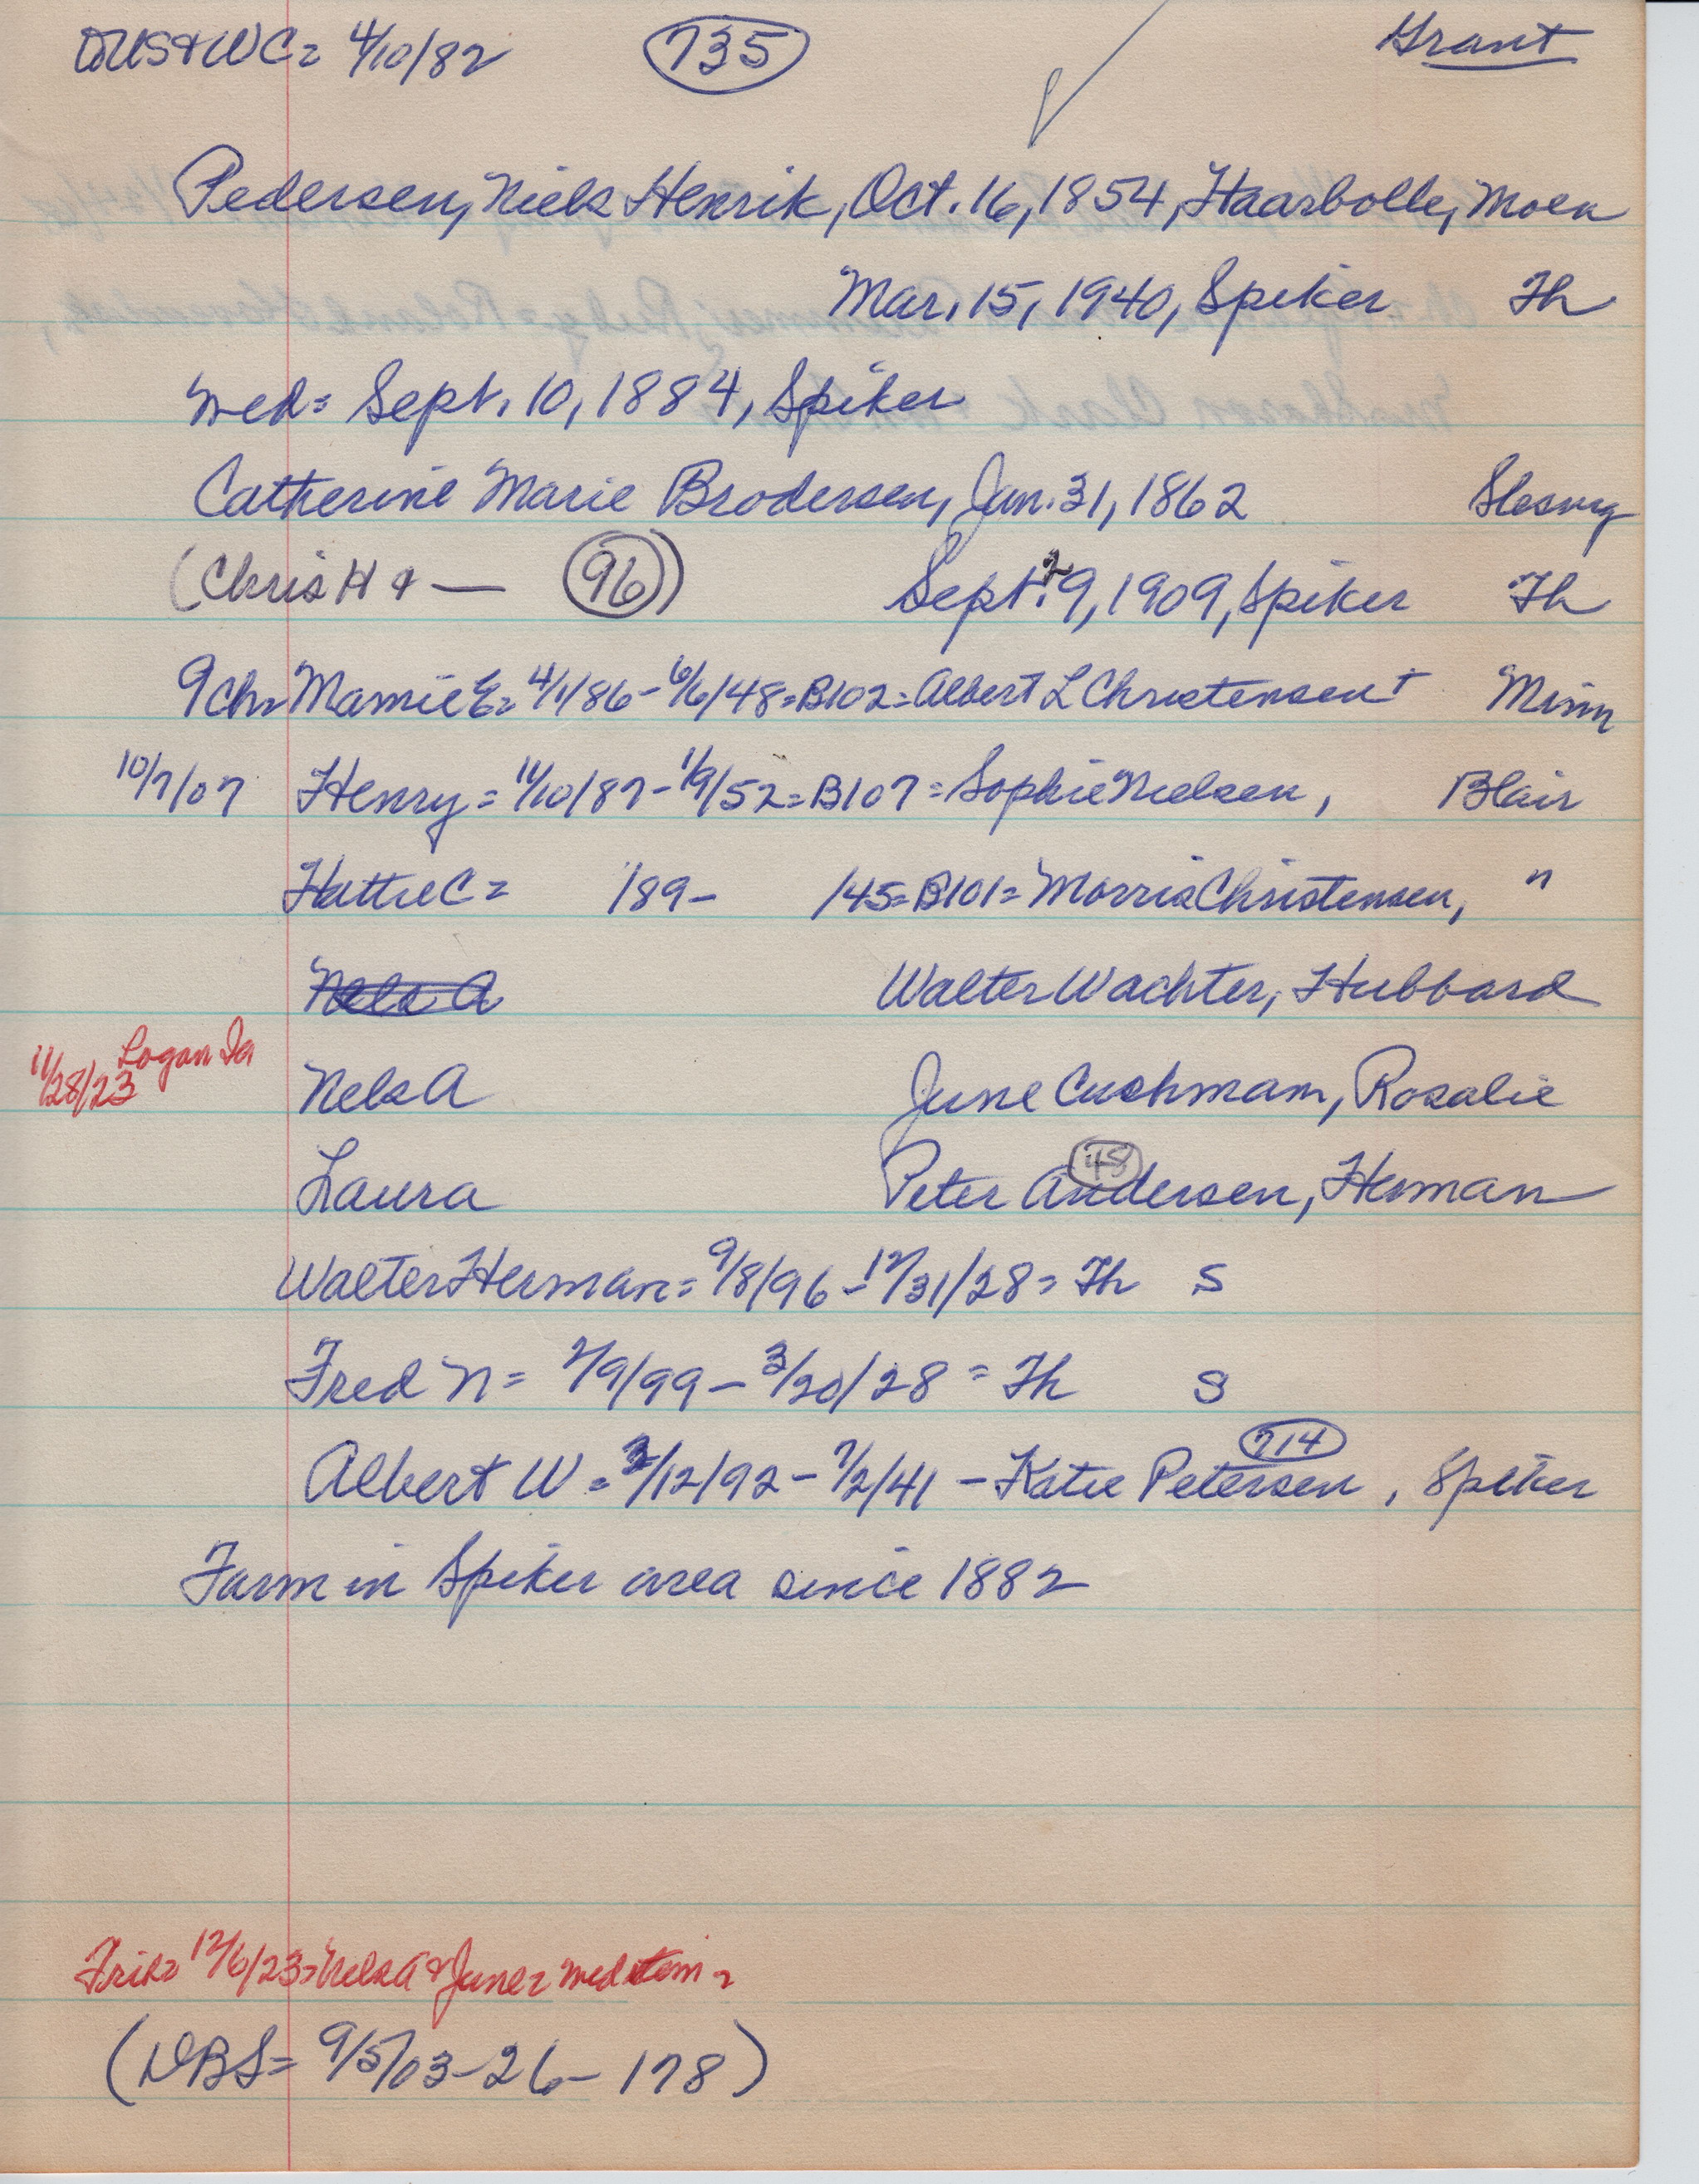 WC= 4/10/82 735 Grant
Pedersen, Niels Henrik, Oct. 16, 1854, Haarbolle, Moen
Mar. 15, 1940, Spiker Th
Med= Sept. 10, 1884, Spiker
Catherine Marie Brodersen, Jan. 31, 1862 Slesvig
(Chris H & — 96) Sept. 29, 1909, Spiker Th
9ch= Mamie E= 4/1/86-6/6/48=B102=Albert L Christensen+ Minn
10/7/07 Henry= 11/10/87-1/9/52=B107=Sophie Nielsen, Blair
Hattie C= /89- /45=B101=Morris Christensen, "
Nels A Walter Wachter, Hubbard
11/28/23 Logan Ia Nels A June Cushman, Rosalie
Laura Peter Andersen, 48 Herman
Walter Herman= 9/8/96-12/31/28= Th S
Fred N= 2/9/99-3/20/28= Th S
Albert W= 3/12/92-7/2/41-Katie Petersen 714, Spiker
Farm in Spiker area since 1882
12/6/23=Nels A & June=
(DBS= 9/5/03-26-178)